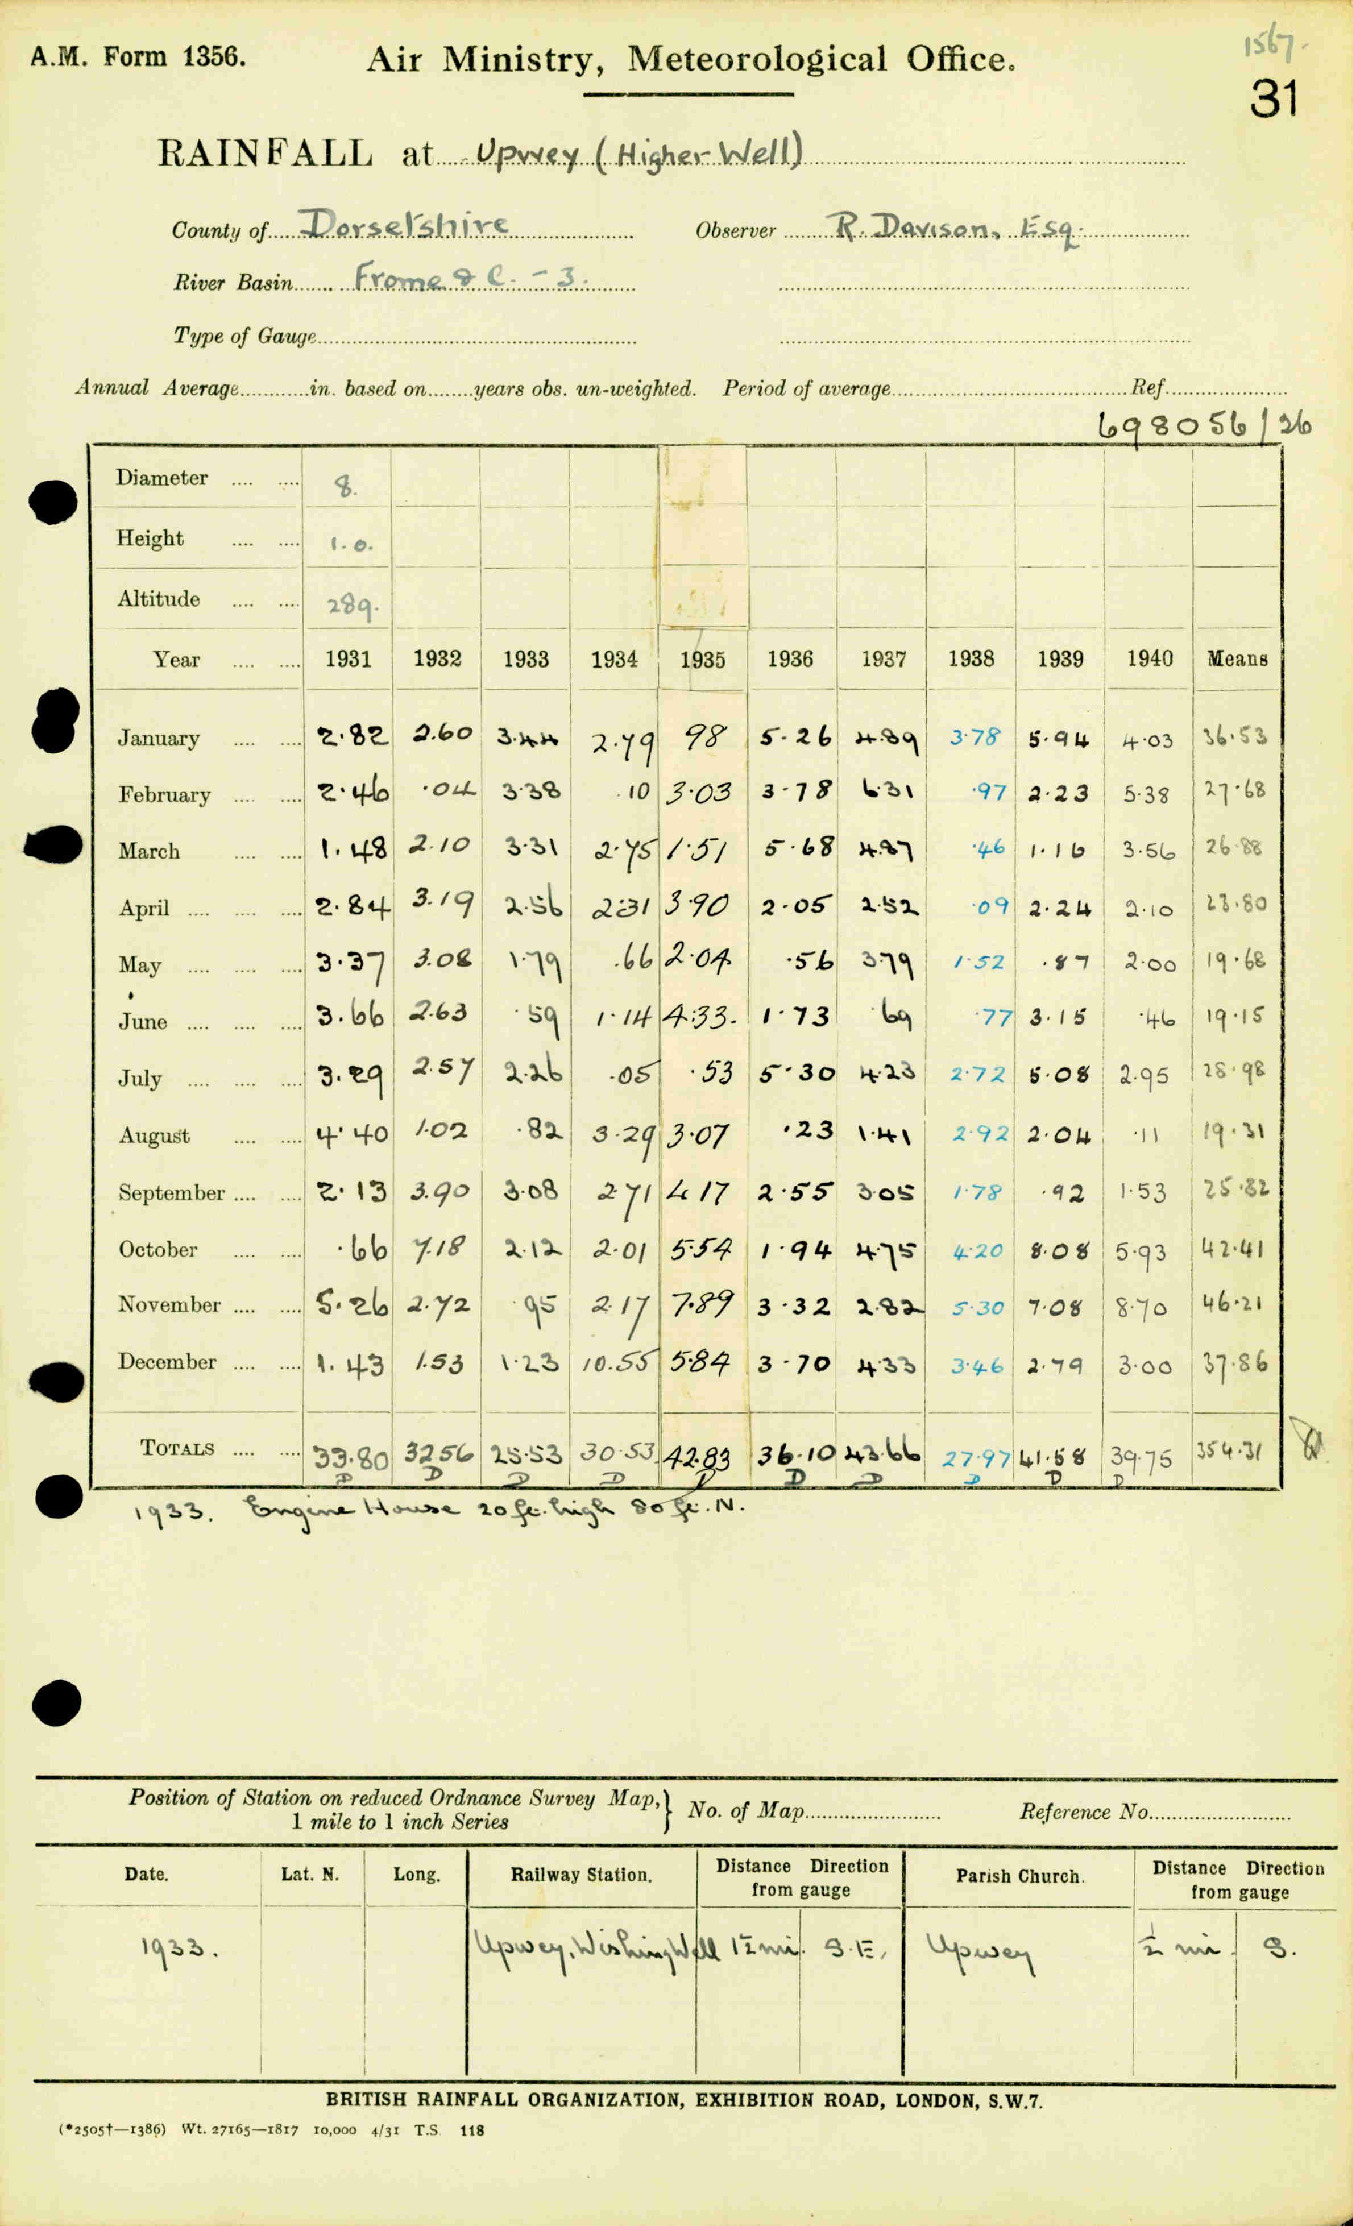 1567.
A.M. Form 1356. Air Ministry, Meteorological Office.
31
RAINFALL at Upwey (Higher Well)
County of Dorsetshire Observer R. Davison, Esq.
River Basin Frome & C. - 3.
Type of Gauge
Annual Average in. based on years obs. un-weighted. Period of average Ref.
698056/26
Diameter 8.
Height 1.0.
Altitude 289.
Year 1931 1932 1933 1934 1935 1936 1937 1938 1939 1940 Means
January 2.82 2.60 3.44 2.79 98 5.26 4.89 3.78 5.94 4.03 36.53
February 2.46 .04 3.38 .10 3.03 3.78 6.31 .97 2.23 5.38 27.68
March 1.48 2.10 3.31 2.75 1.51 5.68 4.87 .46 1.16 3.56 26.88
April 2.84 3.19 2.56 2.31 3.90 2.05 2.52 .09 2.24 2.10 23.80
May 3.37 3.08 1.79 .66 2.04 .56 3.79 1.52 .87 2.00 19.68
June 3.66 2.63 .59 1.14 4.33. 1.73 69 .77 3.15 .46 19.15
July 3.29 2.57 2.26 .05 .53 5.30 4.23 2.72 5.08 2.95 28.98
August 4.40 1.02 .82 3.29 3.07 .23 1.41 2.92 2.04 .11 19.31
September 2.13 3.90 3.08 2.71 4.17 2.55 3.05 1.78 .92 1.53 25.82
October .66 7.18 2.12 2.01 5.54 1.94 4.75 4.20 8.08 5.93 42.41
November 5.26 2.72 .95 2.17 7.89 3.32 2.82 5.30 7.08 8.70 46.21
December 1.43 1.53 1.23 10.55 5.84 3.70 4.33 3.46 2.79 3.00 37.86
TOTALS 33.80 32.56 25.53 30.53 42.83 36.10 43.66 27.97 41.58 39.75 354.31
D D D D D D D D D D
1933. Engine House 20 ft. high 80 ft. N.
Position of Station on reduced Ordnance Survey Map, } No. of Map Reference No.
1 mile to 1 inch Series
Date. Lat. N. Long. Railway Station. Distance Direction from gauge Parish Church. Distance Direction from gauge
1933. Upwey, Wishing Well 1½ mi. S.E. Upwey ½ mi. S.
BRITISH RAINFALL ORGANIZATION, EXHIBITION ROAD, LONDON, S.W.7.
(*2505†—1386) Wt. 27165—1817 10,000 4/31 T.S. 118